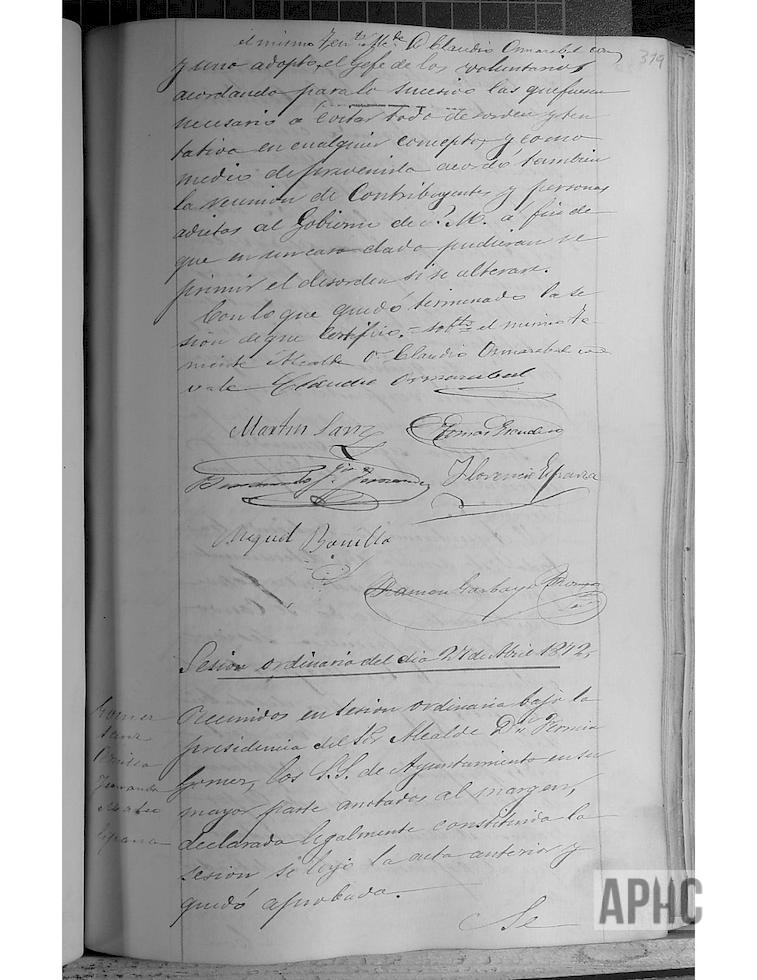 319
el mismo Tente. Alcde. D. Claudio Ormazabal con
y uno adopto, el Gefe de los voluntarios
acordando para lo sucesivo las que fueren
necesario a evitar todo desorden y ten
tativa en cualquier concepto, y como
medio de prevenirla acordo tambien
la reunion de Contribuyentes y personas
adictas al Gobierno de S. M. a fin de
que en un caso dado pudieran re
primir el desorden si se alterare.
Con lo que quedó terminado la se
sion de que Certifico. = el mismo Te
niente Alcalde Dn. Claudio Ormazabal
vale Claudio Ormazabal
Martin Sanz
Tomas
Fernandez
Florencio Esparza
Miguel Bonilla
Ramon Garbayo
Sesion ordinaria del dia 27 de Abril 1872,
Reunidos en sesion ordinaria bajo la
presidencia del Sr. Alcalde Dn. Fermin
Gomez, los S.S. de Ayuntamiento en su
mayor parte anotados al margen,
declarada legalmente constituida la
sesion se leyó la acta anterior y
quedó aprobada.
Gomez
Sanz
Bonilla
Fernandez
Esparza
Se
APHC